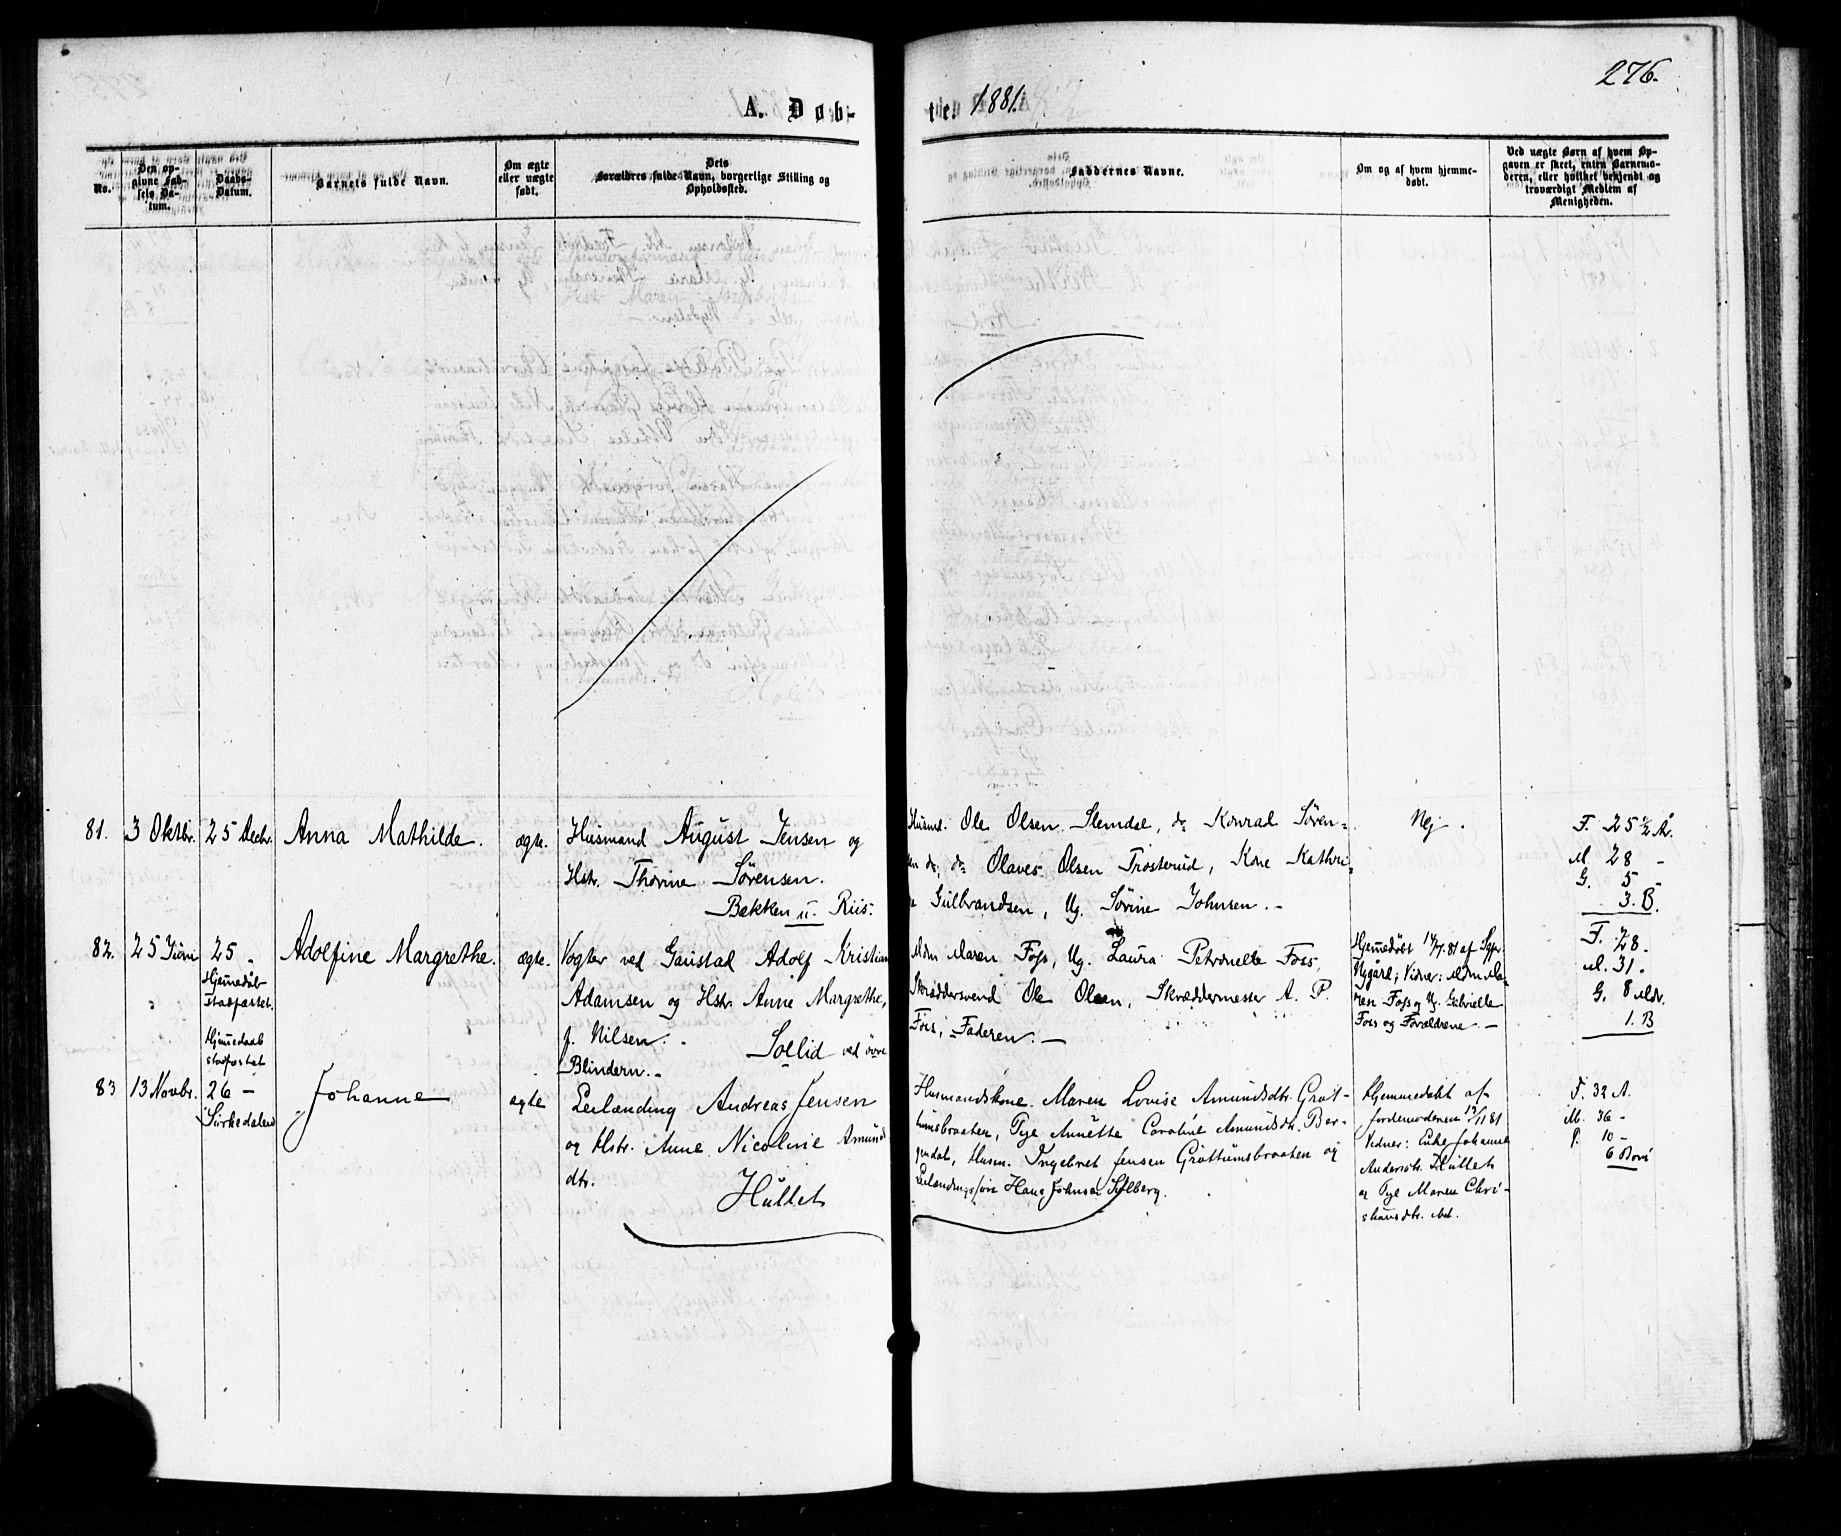 276.
A. Døb-
te. 1881.
No.
Den op-
givne Fød-
sels Da-
tum.
Daabs-
Datum.
Barnets fulde Navn.
Om ægte
eller uægte
født.
Dets
Forældres fulde Navn, borgerlige Stilling og
Opholdssted.
Faddernes Navne.
Om og af hvem hjemme-
døbt.
Ved uægte Børn af hvem Op-
gaven er skeet, enten Barnemo-
deren, eller hvilket bekjendt og
troværdigt Medlem af
Menigheden.
81.
3 Oktbr.
25 Decbr.
Anna Mathilde.
ægte.
Husmand August Jensen og
Hstr. Thorine Sørensen.
Bakken u. Riis.
Husmd. Ole Olsen Slemdal, do Konrad Søren-
sen do, do Olaves Olsen Trosterud, Kone Kathri-
Gulbrandsen, Ug. Sørine Johnsen. -
Nej.
F. 25 1/2 År
M. 28 -
G. 5 -
3. B.
82.
25 Juni
25 -
Hjemedåb
stadfæstet.
Adolfine Margrethe.
ægte.
Vogter ved Gaustad Adolf Kristian
Adamsen og Hstr. Anne Margrethe,
f. Nilsen. -
Sollid ved övre
Blindern. -
Mdm Maren Foss, Ug. Laura Petronelle Foss,
Skræddersvend Ole Olsen, Skræddermester A. P.
Foss, Faderen. -
Hjemedøbt 14/7. 81 af
Nygård; Vidner: Mdm Ma-
ren Foss og Ug. Gabrielle
Foss og Forældrene. -
F. 28 -
M. 31.
G. 8 Mdr.
1. B
83
13 Novbr.
Hjemedaab
stadfæstet
26 -
Sørkedalen
Johanne
ægte
Leilænding Andreas Jensen
og Hstr. Anne Nicoline Amunds
dtr.
Hullet
Husmandskone Maren Lovise Amundsdtr. Grøt-
tumsbraaten, Pige Annette Caroline Amundsdtr. Ber-
gendal, Husm. Ingebret Jensen Grøttumsbraaten og
Leilændingssøn Hans Johnsen Solberg.
Hjemmedøbt af
Jordemoderen 13/11 81
Vidner: Enke Johanne
Andersdtr. Hullet
og Pige Maren Chri-
stiansdtr. ibd.
F. 32 A.
M. 36 -
P. 10 -
6 Børn